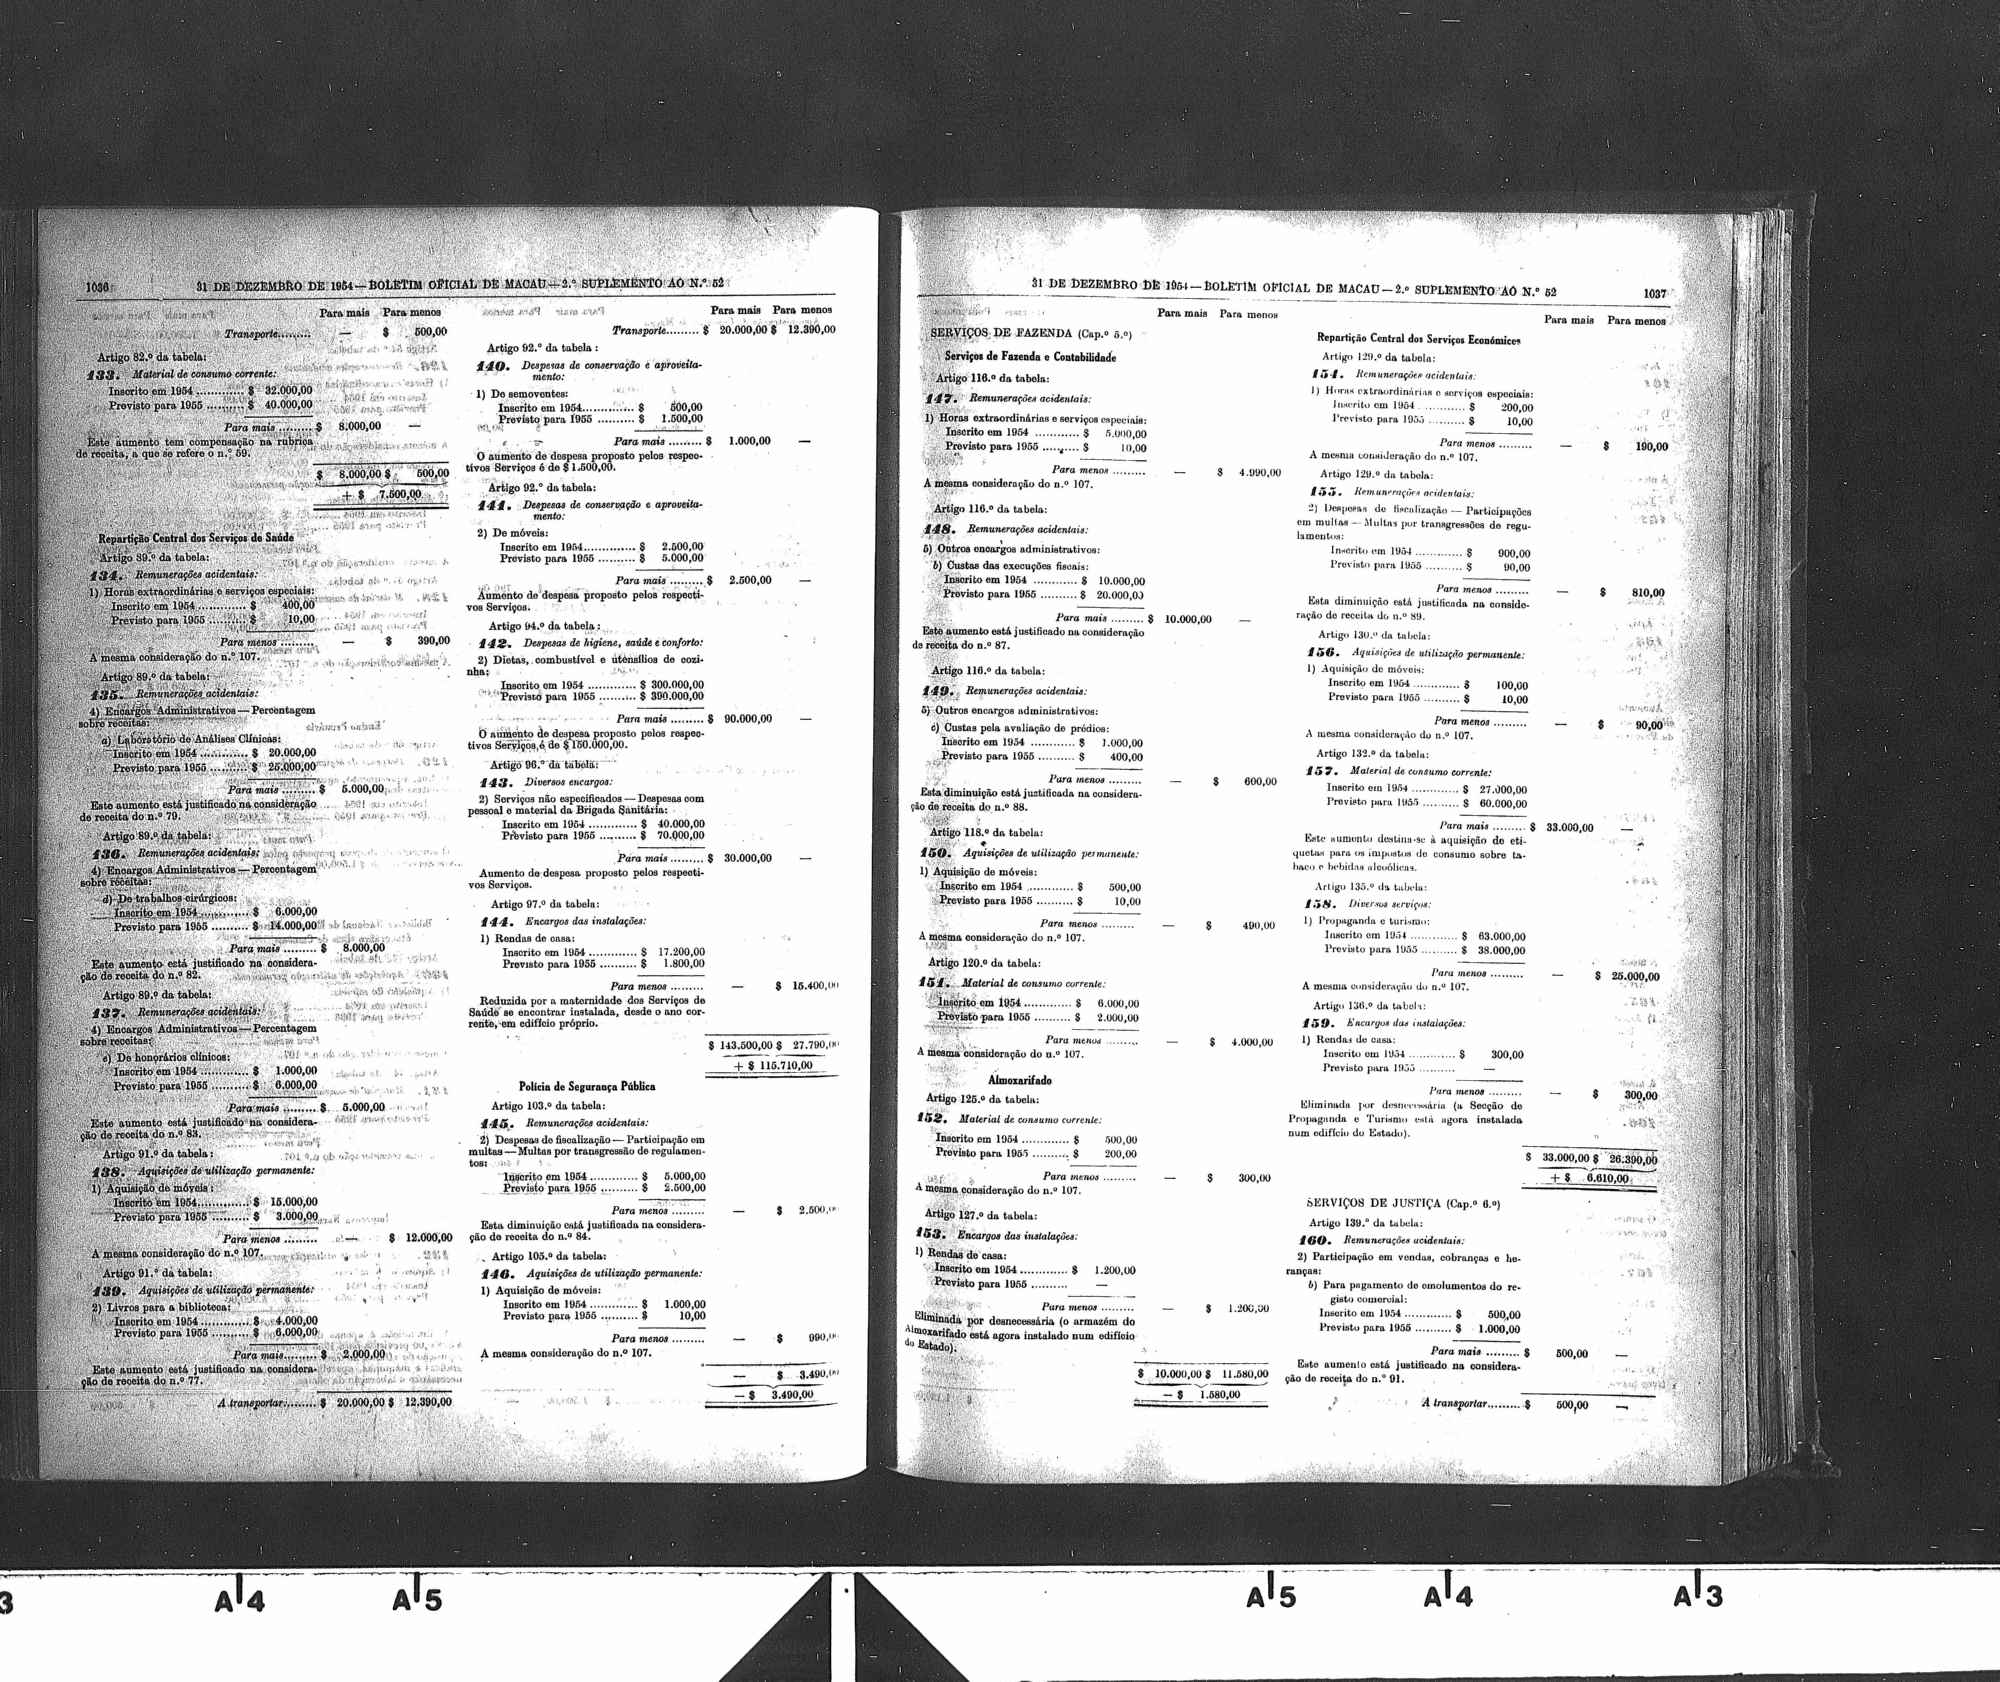 1036
31 DE DEZEMBRO DE 1954—BOLETIM OFICIAL DE MACAU—2.º SUPLEMENTO AO N.º 52
Para mais Para menos
Transporte......... — $ 500,00
Artigo 82.º da tabela:
133. Material de consumo corrente:
Inscrito em 1954 ............ $ 32.000,00
Previsto para 1955 .......... $ 40.000,00
Para mais ......... $ 8.000,00 —
Este aumento tem compensação na rubrica
de receita, a que se refere o n.º 59.
$ 8.000,00 $ 500,00
+ $ 7.500,00
Repartição Central dos Serviços de Saúde
Artigo 89.º da tabela:
134. Remunerações acidentais:
1) Horas extraordinárias e serviços especiais:
Inscrito em 1954 ............. $ 400,00
Previsto para 1955 .......... $ 10,00
Para menos ......... — $ 390,00
A mesma consideração do n.º 107.
Artigo 89.º da tabela:
135. Remunerações acidentais:
4) Encargos Administrativos — Percentagem
sobre receitas:
a) Laboratório de Análises Clínicas:
Inscrito em 1954 ............ $ 20.000,00
Previsto para 1955 .......... $ 25.000,00
Para mais ......... $ 5.000,00
Este aumento está justificado na consideração
de receita do n.º 79.
Artigo 89.º da tabela:
136. Remunerações acidentais:
4) Encargos Administrativos — Percentagem
sobre receitas:
d) De trabalhos cirúrgicos:
Inscrito em 1954 ............. $ 6.000,00
Previsto para 1955 .......... $ 14.000,00
Para mais ......... $ 8.000,00
Este aumento está justificado na considera-
ção de receita do n.º 82.
Artigo 89.º da tabela:
137. Remunerações acidentais:
4) Encargos Administrativos — Percentagem
sobre receitas:
e) De honorários clínicos:
Inscrito em 1954 ............. $ 1.000,00
Previsto para 1955 .......... $ 6.000,00
Para mais ......... $ 5.000,00
Este aumento está justificado na considera-
ção de receita do n.º 83.
Artigo 91.º da tabela:
138. Aquisições de utilização permanente:
1) Aquisição de móveis:
Inscrito em 1954............. $ 15.000,00
Previsto para 1955 .......... $ 3.000,00
Para menos ......... — $ 12.000,00
A mesma consideração do n.º 107.
Artigo 91.º da tabela:
139. Aquisições de utilização permanente:
2) Livros para a biblioteca:
Inscrito em 1954 ............. $ 4.000,00
Previsto para 1955 .......... $ 6.000,00
Para mais......... $ 2.000,00
Este aumento está justificado na considera-
ção de receita do n.º 77.
A transportar......... $ 20.000,00 $ 12.390,00
Para mais Para menos
Transporte......... $ 20.000,00 $ 12.390,00
Artigo 92.º da tabela :
140. Despesas de conservação e aproveita-
mento:
1) De semoventes:
Inscrito em 1954.............. $ 500,00
Previsto para 1955 .......... $ 1.500,00
Para mais ......... $ 1.000,00 —
O aumento de despesa proposto pelos respec-
tivos Serviços é de $ 1.500,00.
Artigo 92.º da tabela:
141. Despesas de conservação e aproveita-
mento:
2) De móveis:
Inscrito em 1954.............. $ 2.500,00
Previsto para 1955 .......... $ 5.000,00
Para mais ......... $ 2.500,00 —
Aumento de despesa proposto pelos respecti-
vos Serviços.
Artigo 94.º da tabela :
142. Despesas de higiene, saúde e conforto:
2) Dietas, combustível e utensílios de cozi-
nha:
Inscrito em 1954 ............. $ 300.000,00
Previsto para 1955 .......... $ 390.000,00
Para mais ......... $ 90.000,00 —
O aumento de despesa proposto pelos respec-
tivos Serviços é de $ 150.000,00.
Artigo 96.º da tabela:
143. Diversos encargos:
2) Serviços não especificados — Despesas com
pessoal e material da Brigada Sanitária:
Inscrito em 1954 ............. $ 40.000,00
Previsto para 1955 .......... $ 70.000,00
Para mais ......... $ 30.000,00 —
Aumento de despesa proposto pelos respecti-
vos Serviços.
Artigo 97.º da tabela:
144. Encargos das instalações:
1) Rendas de casa:
Inscrito em 1954 ............. $ 17.200,00
Previsto para 1955 .......... $ 1.800,00
Para menos ......... — $ 15.400,00
Reduzida por a maternidade dos Serviços de
Saúde se encontrar instalada, desde o ano cor-
rente, em edifício próprio.
$ 143.500,00 $ 27.790,00
+ $ 115.710,00
Polícia de Segurança Pública
Artigo 103.º da tabela:
145. Remunerações acidentais:
2) Despesas de fiscalização — Participação em
multas — Multas por transgressão de regulamen-
tos:
Inscrito em 1954 ............. $ 5.000,00
Previsto para 1955 .......... $ 2.500,00
Para menos ......... — $ 2.500,00
Esta diminuição está justificada na considera-
ção de receita do n.º 84.
Artigo 105.º da tabela:
146. Aquisições de utilização permanente:
1) Aquisição de móveis:
Inscrito em 1954 ............. $ 1.000,00
Previsto para 1955 .......... $ 10,00
Para menos ......... — $ 990,00
A mesma consideração do n.º 107.
— $ 3.490,00
— $ 3.490,00
31 DE DEZEMBRO DE 1954—BOLETIM OFICIAL DE MACAU—2.º SUPLEMENTO AO N.º 52
1037
Para mais Para menos
SERVIÇOS DE FAZENDA (Cap.º 5.º)
Serviços de Fazenda e Contabilidade
Artigo 116.º da tabela:
147. Remunerações acidentais:
1) Horas extraordinárias e serviços especiais:
Inscrito em 1954 ............ $ 5.000,00
Previsto para 1955 .......... $ 10,00
Para menos ......... — $ 4.990,00
A mesma consideração do n.º 107.
Artigo 116.º da tabela:
148. Remunerações acidentais:
5) Outros encargos administrativos:
b) Custas das execuções fiscais:
Inscrito em 1954 ............ $ 10.000,00
Previsto para 1955 .......... $ 20.000,00
Para mais ......... $ 10.000,00 —
Este aumento está justificado na consideração
de receita do n.º 87.
Artigo 116.º da tabela:
149. Remunerações acidentais:
5) Outros encargos administrativos:
c) Custas pela avaliação de prédios:
Inscrito em 1954 ............ $ 1.000,00
Previsto para 1955 .......... $ 400,00
Para menos ......... — $ 600,00
Esta diminuição está justificada na considera-
ção de receita do n.º 88.
Artigo 118.º da tabela:
150. Aquisições de utilização permanente:
1) Aquisição de móveis:
Inscrito em 1954 ............ $ 500,00
Previsto para 1955 .......... $ 10,00
Para menos ......... — $ 490,00
A mesma consideração do n.º 107.
Artigo 120.º da tabela:
151. Material de consumo corrente:
Inscrito em 1954 ............ $ 6.000,00
Previsto para 1955 .......... $ 2.000,00
Para menos ......... — $ 4.000,00
A mesma consideração do n.º 107.
Almoxarifado
Artigo 125.º da tabela:
152. Material de consumo corrente:
Inscrito em 1954 ............ $ 500,00
Previsto para 1955 .......... $ 200,00
Para menos ......... — $ 300,00
A mesma consideração do n.º 107.
Artigo 127.º da tabela:
153. Encargos das instalações:
1) Rendas de casa:
Inscrito em 1954 ............ $ 1.200,00
Previsto para 1955 .......... —
Para menos ......... — $ 1.200,00
Eliminada por desnecessária (o armazém do
Almoxarifado está agora instalado num edifício
do Estado).
$ 10.000,00 $ 11.580,00
— $ 1.580,00
Para mais Para menos
Repartição Central dos Serviços Económicos
Artigo 129.º da tabela:
154. Remunerações acidentais:
1) Horas extraordinárias e serviços especiais:
Inscrito em 1954 ............ $ 200,00
Previsto para 1955 .......... $ 10,00
Para menos ......... — $ 190,00
A mesma consideração do n.º 107.
Artigo 129.º da tabela:
155. Remunerações acidentais:
2) Despesas de fiscalização — Participações
em multas — Multas por transgressões de regu-
lamentos:
Inscrito em 1954 ............. $ 900,00
Previsto para 1955 .......... $ 90,00
Para menos ......... — $ 810,00
Esta diminuição está justificada na conside-
ração de receita do n.º 89.
Artigo 130.º da tabela:
156. Aquisições de utilização permanente:
1) Aquisição de móveis:
Inscrito em 1954 ............. $ 100,00
Previsto para 1955 .......... $ 10,00
Para menos ......... — $ 90,00
A mesma consideração do n.º 107.
Artigo 132.º da tabela:
157. Material de consumo corrente:
Inscrito em 1954 ............. $ 27.000,00
Previsto para 1955 .......... $ 60.000,00
Para mais ......... $ 33.000,00 —
Este aumento destina-se à aquisição de eti-
quetas para os impostos de consumo sobre ta-
baco e bebidas alcoólicas.
Artigo 135.º da tabela:
158. Diversos serviços:
1) Propaganda e turismo:
Inscrito em 1954 ............. $ 63.000,00
Previsto para 1955 .......... $ 38.000,00
Para menos ......... — $ 25.000,00
A mesma consideração do n.º 107.
Artigo 136.º da tabela:
159. Encargos das instalações:
1) Rendas de casa:
Inscrito em 1954 ............. $ 300,00
Previsto para 1955 .......... —
Para menos ......... — $ 300,00
Eliminada por desnecessária (a Secção de
Propaganda e Turismo está agora instalada
num edifício do Estado).
$ 33.000,00 $ 26.390,00
+ $ 6.610,00
SERVIÇOS DE JUSTIÇA (Cap.º 6.º)
Artigo 139.º da tabela:
160. Remunerações acidentais:
2) Participação em vendas, cobranças e he-
ranças:
b) Para pagamento de emolumentos do re-
gisto comercial:
Inscrito em 1954 ............. $ 500,00
Previsto para 1955 .......... $ 1.000,00
Para mais ......... $ 500,00 —
Este aumento está justificado na considera-
ção de receita do n.º 91.
A transportar......... $ 500,00 —
3 A4 A5 A5 A4 A3